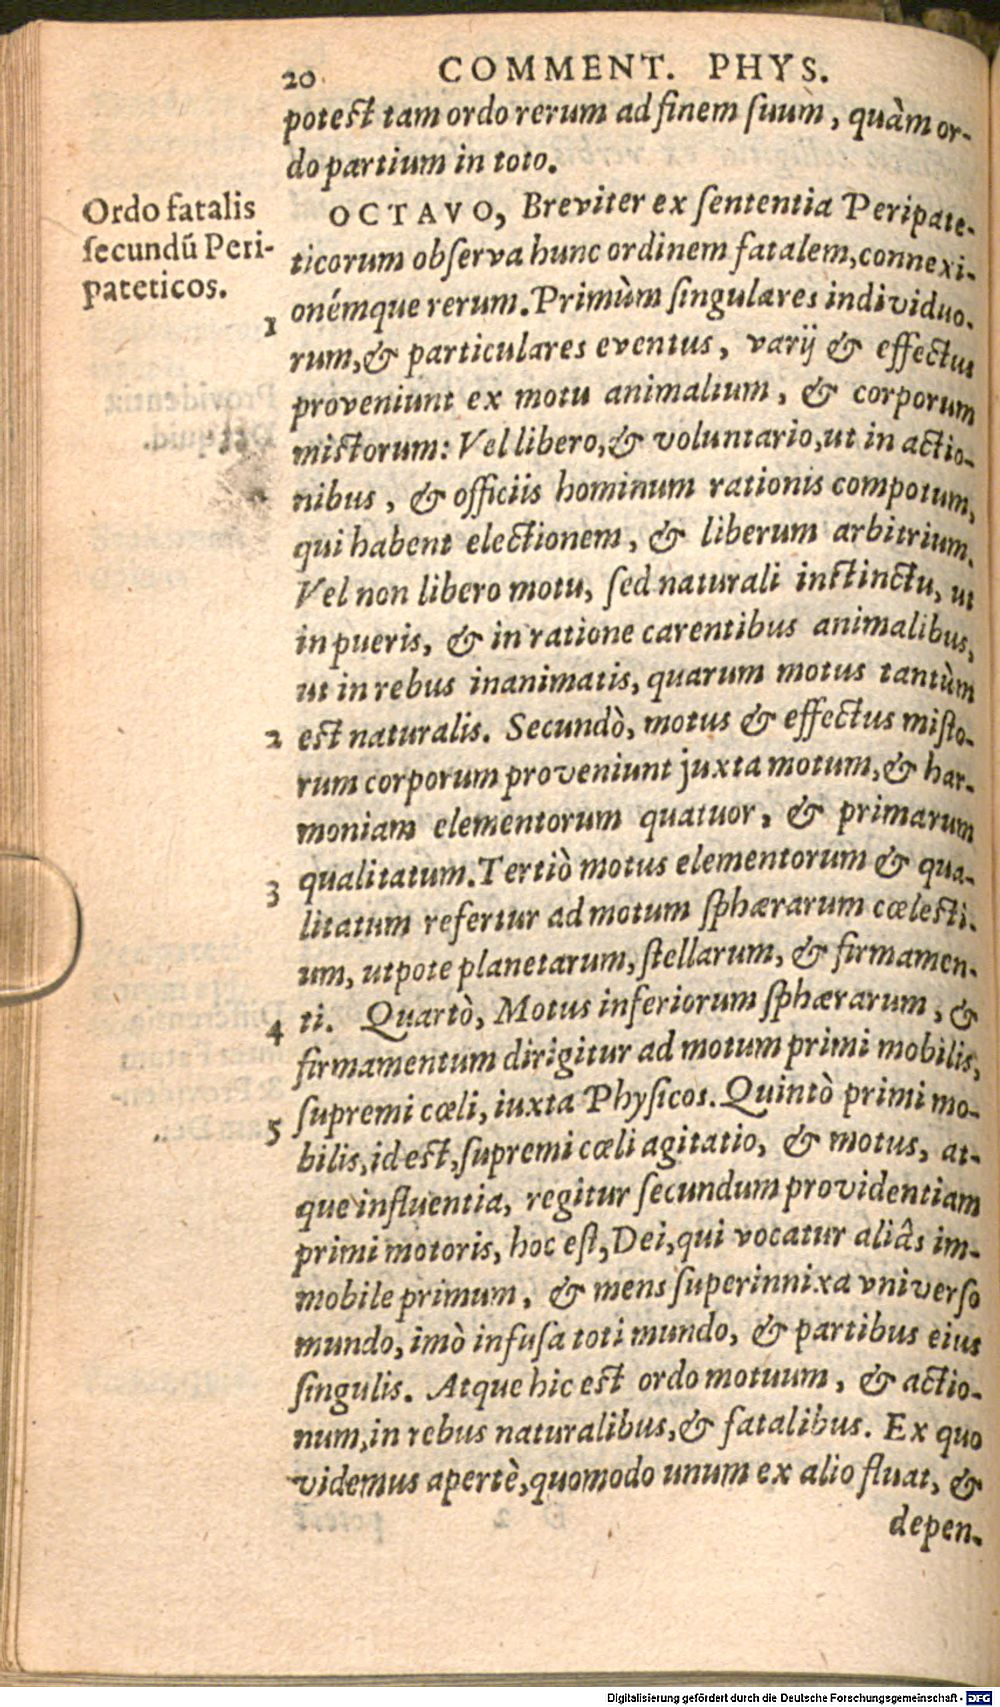 20 COMMENT. PHYS.
potest tam ordo rerum ad finem suum, quàm or-
do partium in toto.
Ordo fatalis
secundū Peri-
pateticos.
OCTAVO, Breviter ex sententia Peripate-
ticorum observa hunc ordinem fatalem, connexi-
onémque rerum. Primùm singulares individuo-
1
rum, & particulares eventus, varij & effectus
proveniunt ex motu animalium, & corporum
mistorum: Vel libero, & voluntario, ut in actio-
nibus, & officiis hominum rationis compotum,
qui habent electionem, & liberum arbitrium.
Vel non libero motu, sed naturali instinctu, ut
in pueris, & in ratione carentibus animalibus,
ut in rebus inanimatis, quarum motus tantùm
2 est naturalis. Secundò, motus & effectus misto-
rum corporum proveniunt juxta motum, & har-
moniam elementorum quatuor, & primarum
3 qualitatum. Tertiò motus elementorum & qua-
litatum refertur ad motum sphærarum cœlesti-
um, utpote planetarum, stellarum, & firmamen-
4 ti. Quartò, Motus inferiorum sphærarum, &
firmamentum dirigitur ad motum primi mobilis,
5 supremi cœli, iuxta Physicos. Quintò primi mo-
bilis, id est, supremi cœli agitatio, & motus, at-
que influentia, regitur secundum providentiam
primi motoris, hoc est, Dei, qui vocatur aliâs im-
mobile primum, & mens superinnixa vniverso
mundo, imò infusa toti mundo, & partibus eius
singulis. Atque hic est ordo motuum, & actio-
num, in rebus naturalibus, & fatalibus. Ex quo
videmus apertè, quomodo unum ex alio fluat, &
depen-
Digitalisierung gefördert durch die Deutsche Forschungsgemeinschaft - DFG